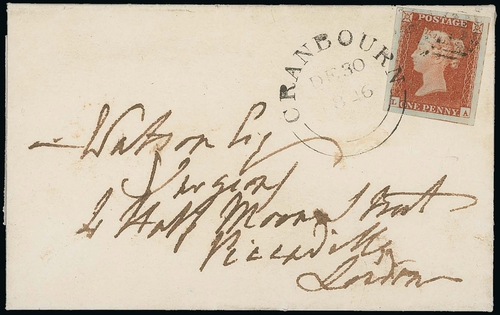 CRANBOURN
DE 30
1846
POSTAGE
L ONE PENNY A
Watson Esq
Surgeon
4 Half Moon Street
Piccadilly
London